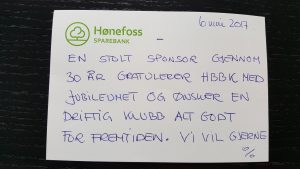 Hønefoss
SPAREBANK
6 mai 2017
EN STOLT SPONSOR GJENNOM
30 ÅR GRATULERER HBBK MED
JUBILEUMET OG ØNSKER EN
DRIFTIG KLUBB ALT GODT
FOR FREMTIDEN. VI VIL GJERNE
%